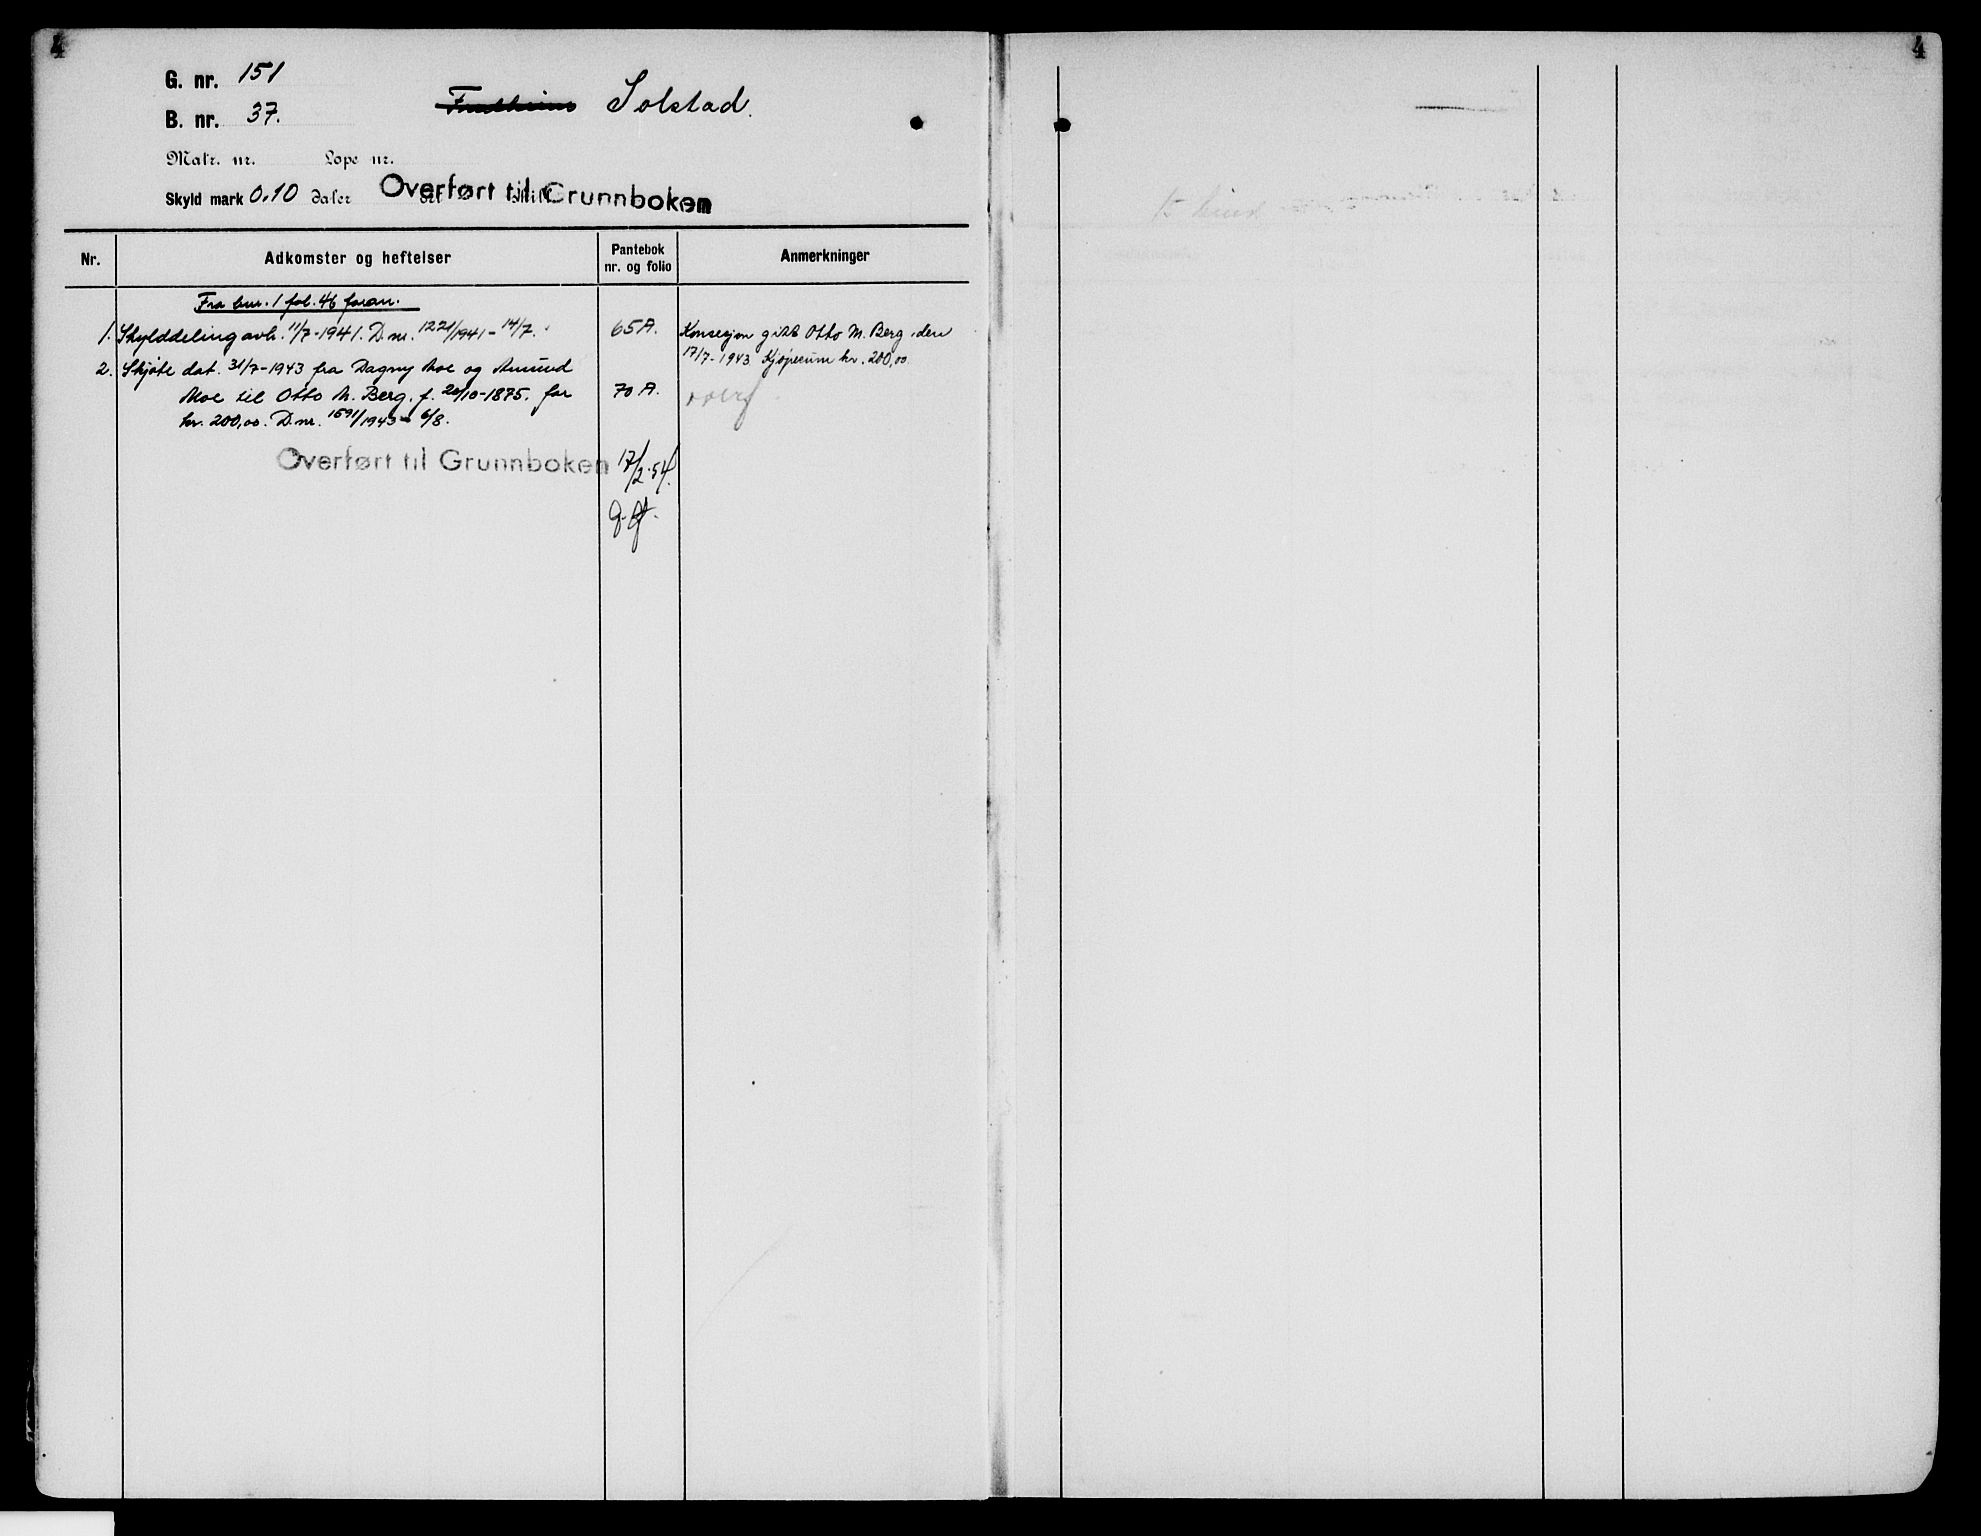 4
G. nr. 151
B. nr. 37.
Solstad.
Matr. nr. Løpe nr.
Skyld mark 0.10 daler ort skill.
Overført til Grunnboken
Nr. Adkomster og heftelser Pantebok nr. og folio Anmerkninger
Fra bnr. 1 fol. 46 foran.
1. Skylddeling avh. 11/7-1941. D.nr. 1221/1941 - 14/7. 65 A. Konsesjon gitt Otto M. Berg, den
17/7-1943 Kjøpesum kr. 200,00
2. Skjøte dat. 31/7-1943 fra Dagny Moe og Amund
Moe til Otto M. Berg, f. 20/10-1875. for 70 A.
kr. 200,00. D.nr. 1591/1943 - 6/8.
Overført til Grunnboken 17/2.54.
4